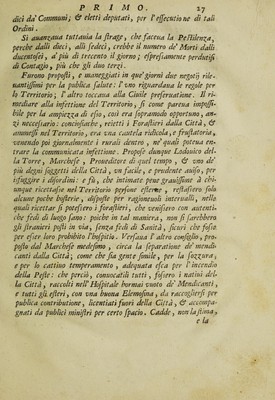 PRIMO. 27
di dà' Communi, & eletti deputati, per l'essecutione di tali
Ordini.
Si auanzaua tuttauia la strage, che faceua la Pestilenza,
perche dalli dieci, alli sedeci, crebbe il numero de' Morti dalli
ducentosei, à più di trecento il giorno; espressamente perdutisi
di Contagio, più che gli duo terzi.
Furono proposti, e maneggiati in que' giorni due negotij rile-
uantissimi per la publica salute: l'uno riguardaua le regole per
lo Territorio; l'altro toccaua alla Ciuile preseruatione. Il ri-
mediare alla infettione del Territorio, si come pareua impossi-
bile per la ampiezza di esso, così era sopramodo opportuno, an-
zi necessario: conciosiache, reietti i Forastieri dalla Città, &
ammessi nel Territorio, era vna cautela ridicola, e frustatoria,
venendo poi giornalmente i rurali dentro, ne' quali poteua en-
trare la communicata infettione. Propose dunque Ludouico del-
la Torre, Marchese, Proueditore di quel tempo, & vno de'
più degni soggetti della Città, vn facile, e prudente auiso, per
isfuggire i disordini: e fù, che intimate pene grauissime à chi-
unque ricettasse nel Territorio persone esterne, restassero solo
alcune poche hosterie, disposte per ragioneuoli interualli, nelle
quali ricettar si potessero i forastieri, che venissero con autenti-
che fedi di luogo sano: poiche in tal maniera, non si sarebbero
gli stranieri posti in via, senza fedi di Sanità, sicuri che fosse
per esser loro prohibito l'hospitio. Versaua l'altro consiglio, pro-
posto dal Marchese medesimo, circa la separatione de' mendi-
canti dalla Città; come che sia gente simile, per la sozzura,
e per lo cattiuo temperamento, adequata esca per l'incendio
della Peste: che perciò, conuocatili tutti, fossero i natiui del-
la Città, raccolti nell'Hospitale hormai vuoto de' Mendicanti,
e tutti gli esteri, con vna buona Elemosina, da raccogliersi per
publica contributione, licentiati fuori della Città, & accompa-
gnati da publici ministri per certo spacio. Cadde, non la stima,
e la